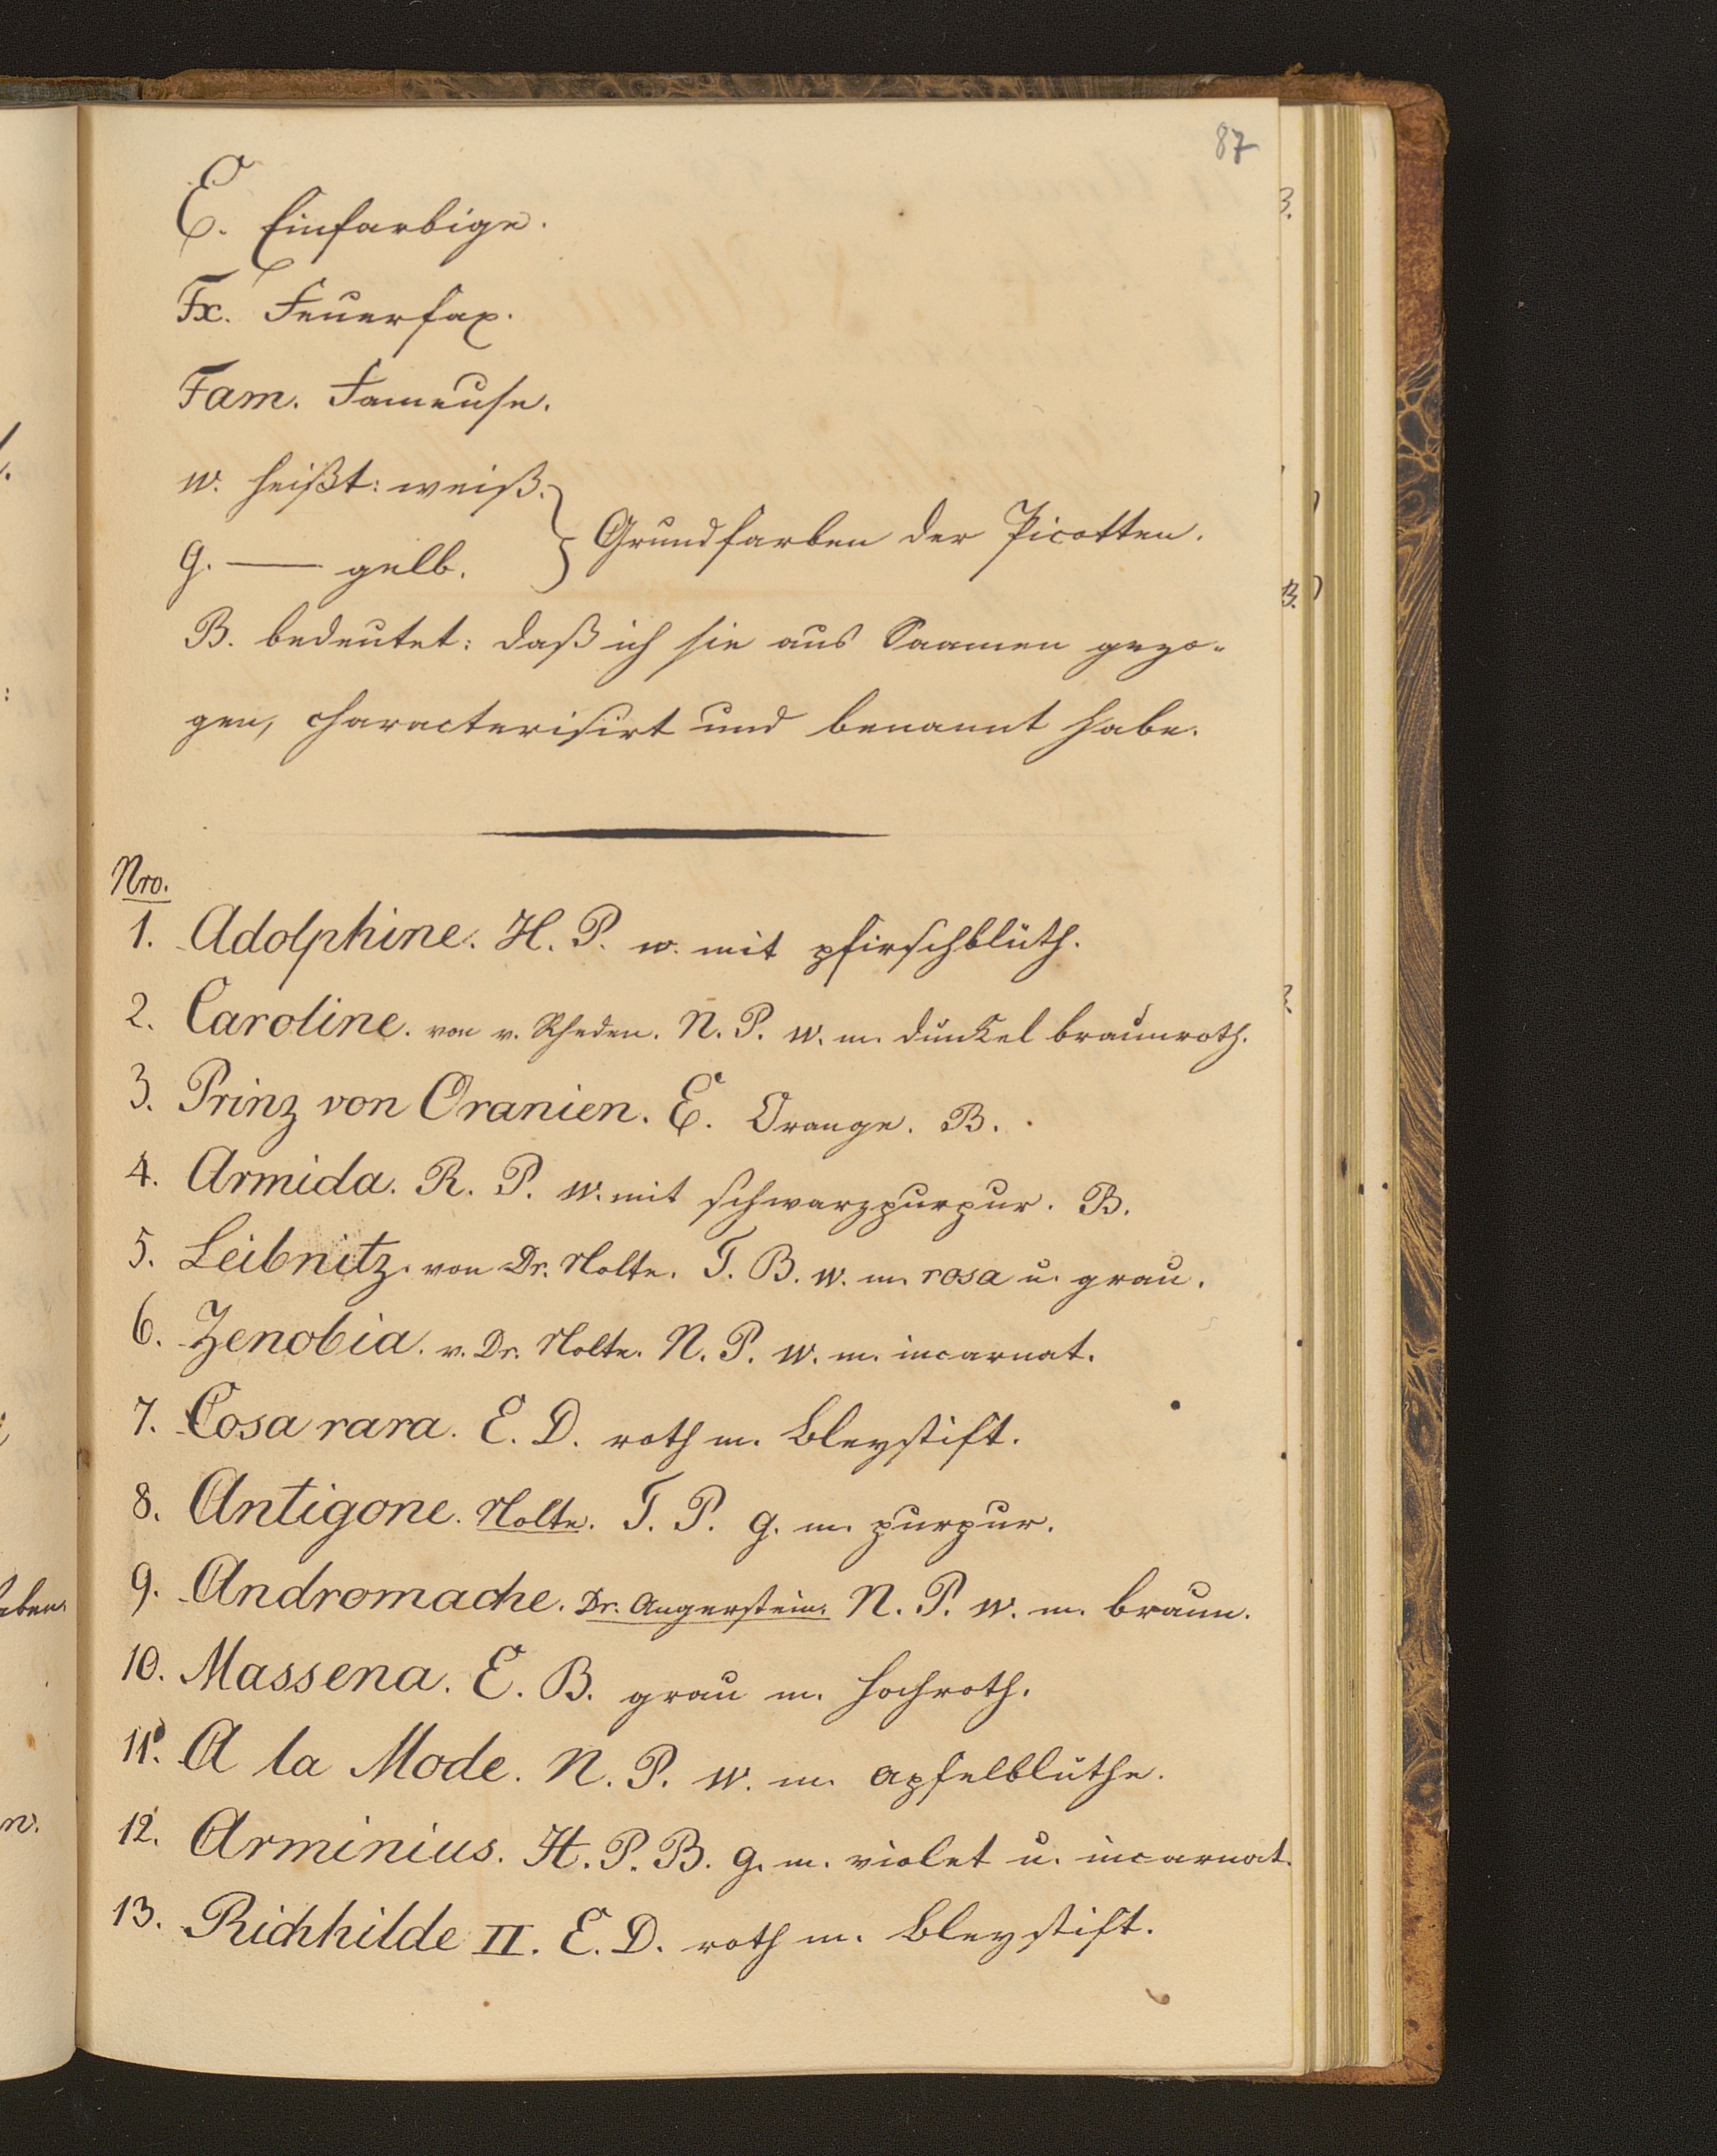 87
E. Einfarbige.
Fx. Feuerfax.
Fam. Fameuse.
w. heißt: weiß. } Grundfarben der Picotten.
g. — gelb.
B. bedeutet: daß ich sie aus Saamen gezo-
gen, characterisirt und benannt habe.
Nro.
1. Adolphine. H. P. w. mit pfirschblüth.
2. Caroline. von v. Rheden. N. P. w. m. dunkel braunroth.
3. Prinz von Oranien. E. Orange. B.
4. Armida. R. P. w. mit schwarzpurpur. B.
5. Leibnitz. von Dr. Nolte. T. B. w. m. rosa u. grau.
6. Zenobia. v. Dr. Nolte. N. P. w. m. incarnat.
7. Cosa rara. E. D. roth m. Bleystift.
8. Antigone. Nolte. T. P. g. m. purpur.
9. Andromache. Dr. Angerstein. N. P. w. m. braun.
10. Massena. E. B. grau m. hochroth.
11. A la Mode. N. P. w. m. apfelblüthe.
12. Arminius. H. P. B. g. m. violet u. incarnat.
13. Richhilde II. E. D. roth m. Bleystift.